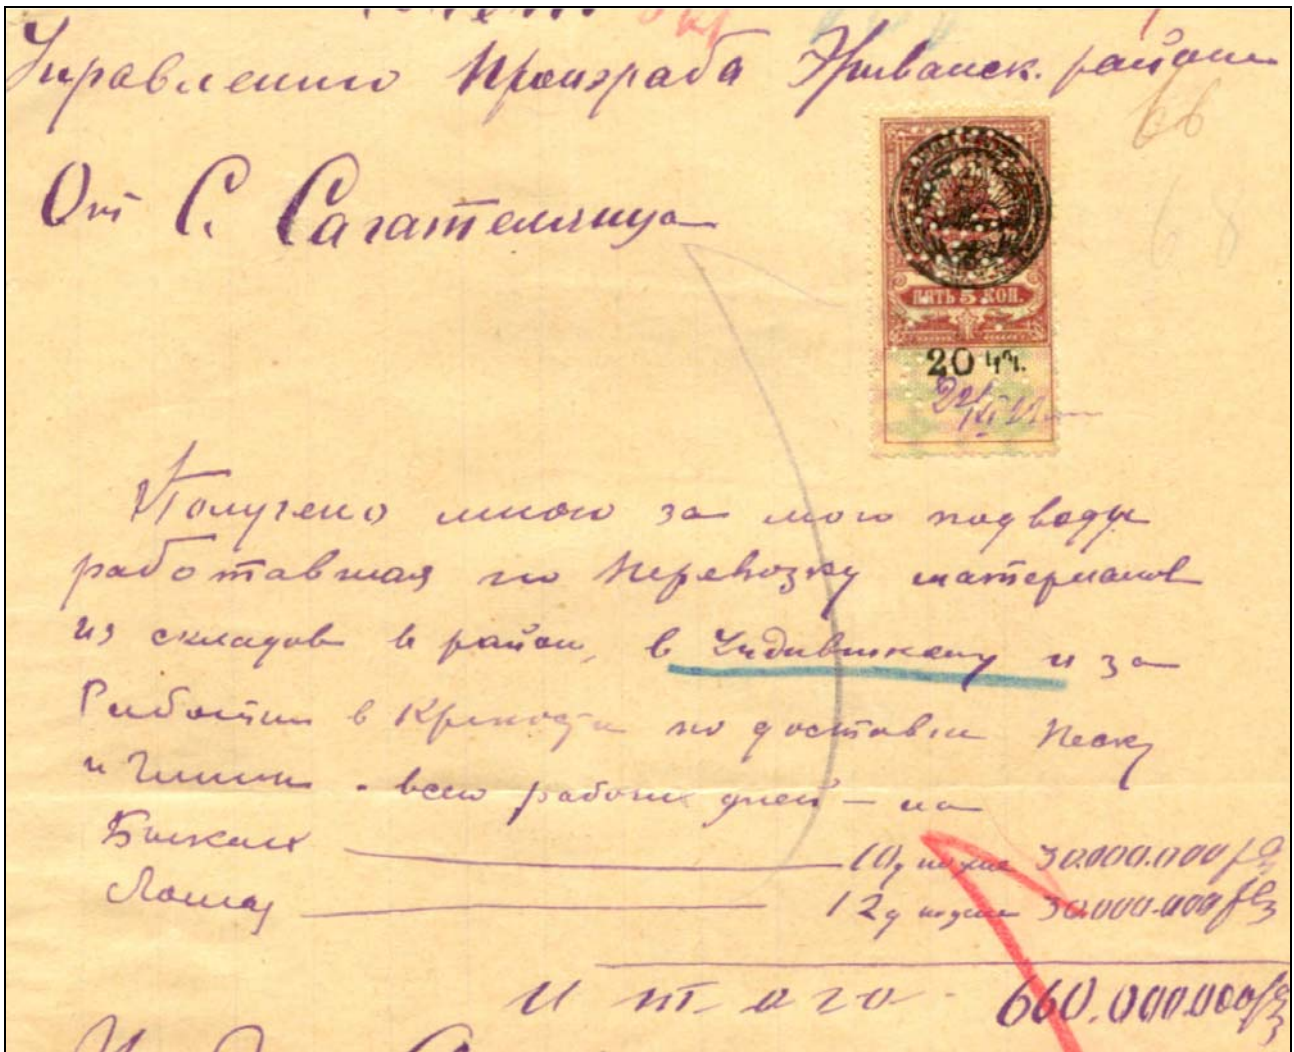 Управлению Произраба Эриванск. района
66
От С. Сагателянца
68
ПЯТЬ 5 КОП.
20 կոպ.
Получено мною за мою подводу
работавшая по перевозку материалов
из складов в район, в и за
Работы в Крепости по доставки Песку
и Глины. всего рабочих дней – на
Быках 10 д 30.000.000 р
Лошад 12 д 30.000.000 р
Итого - 660.000.000 р